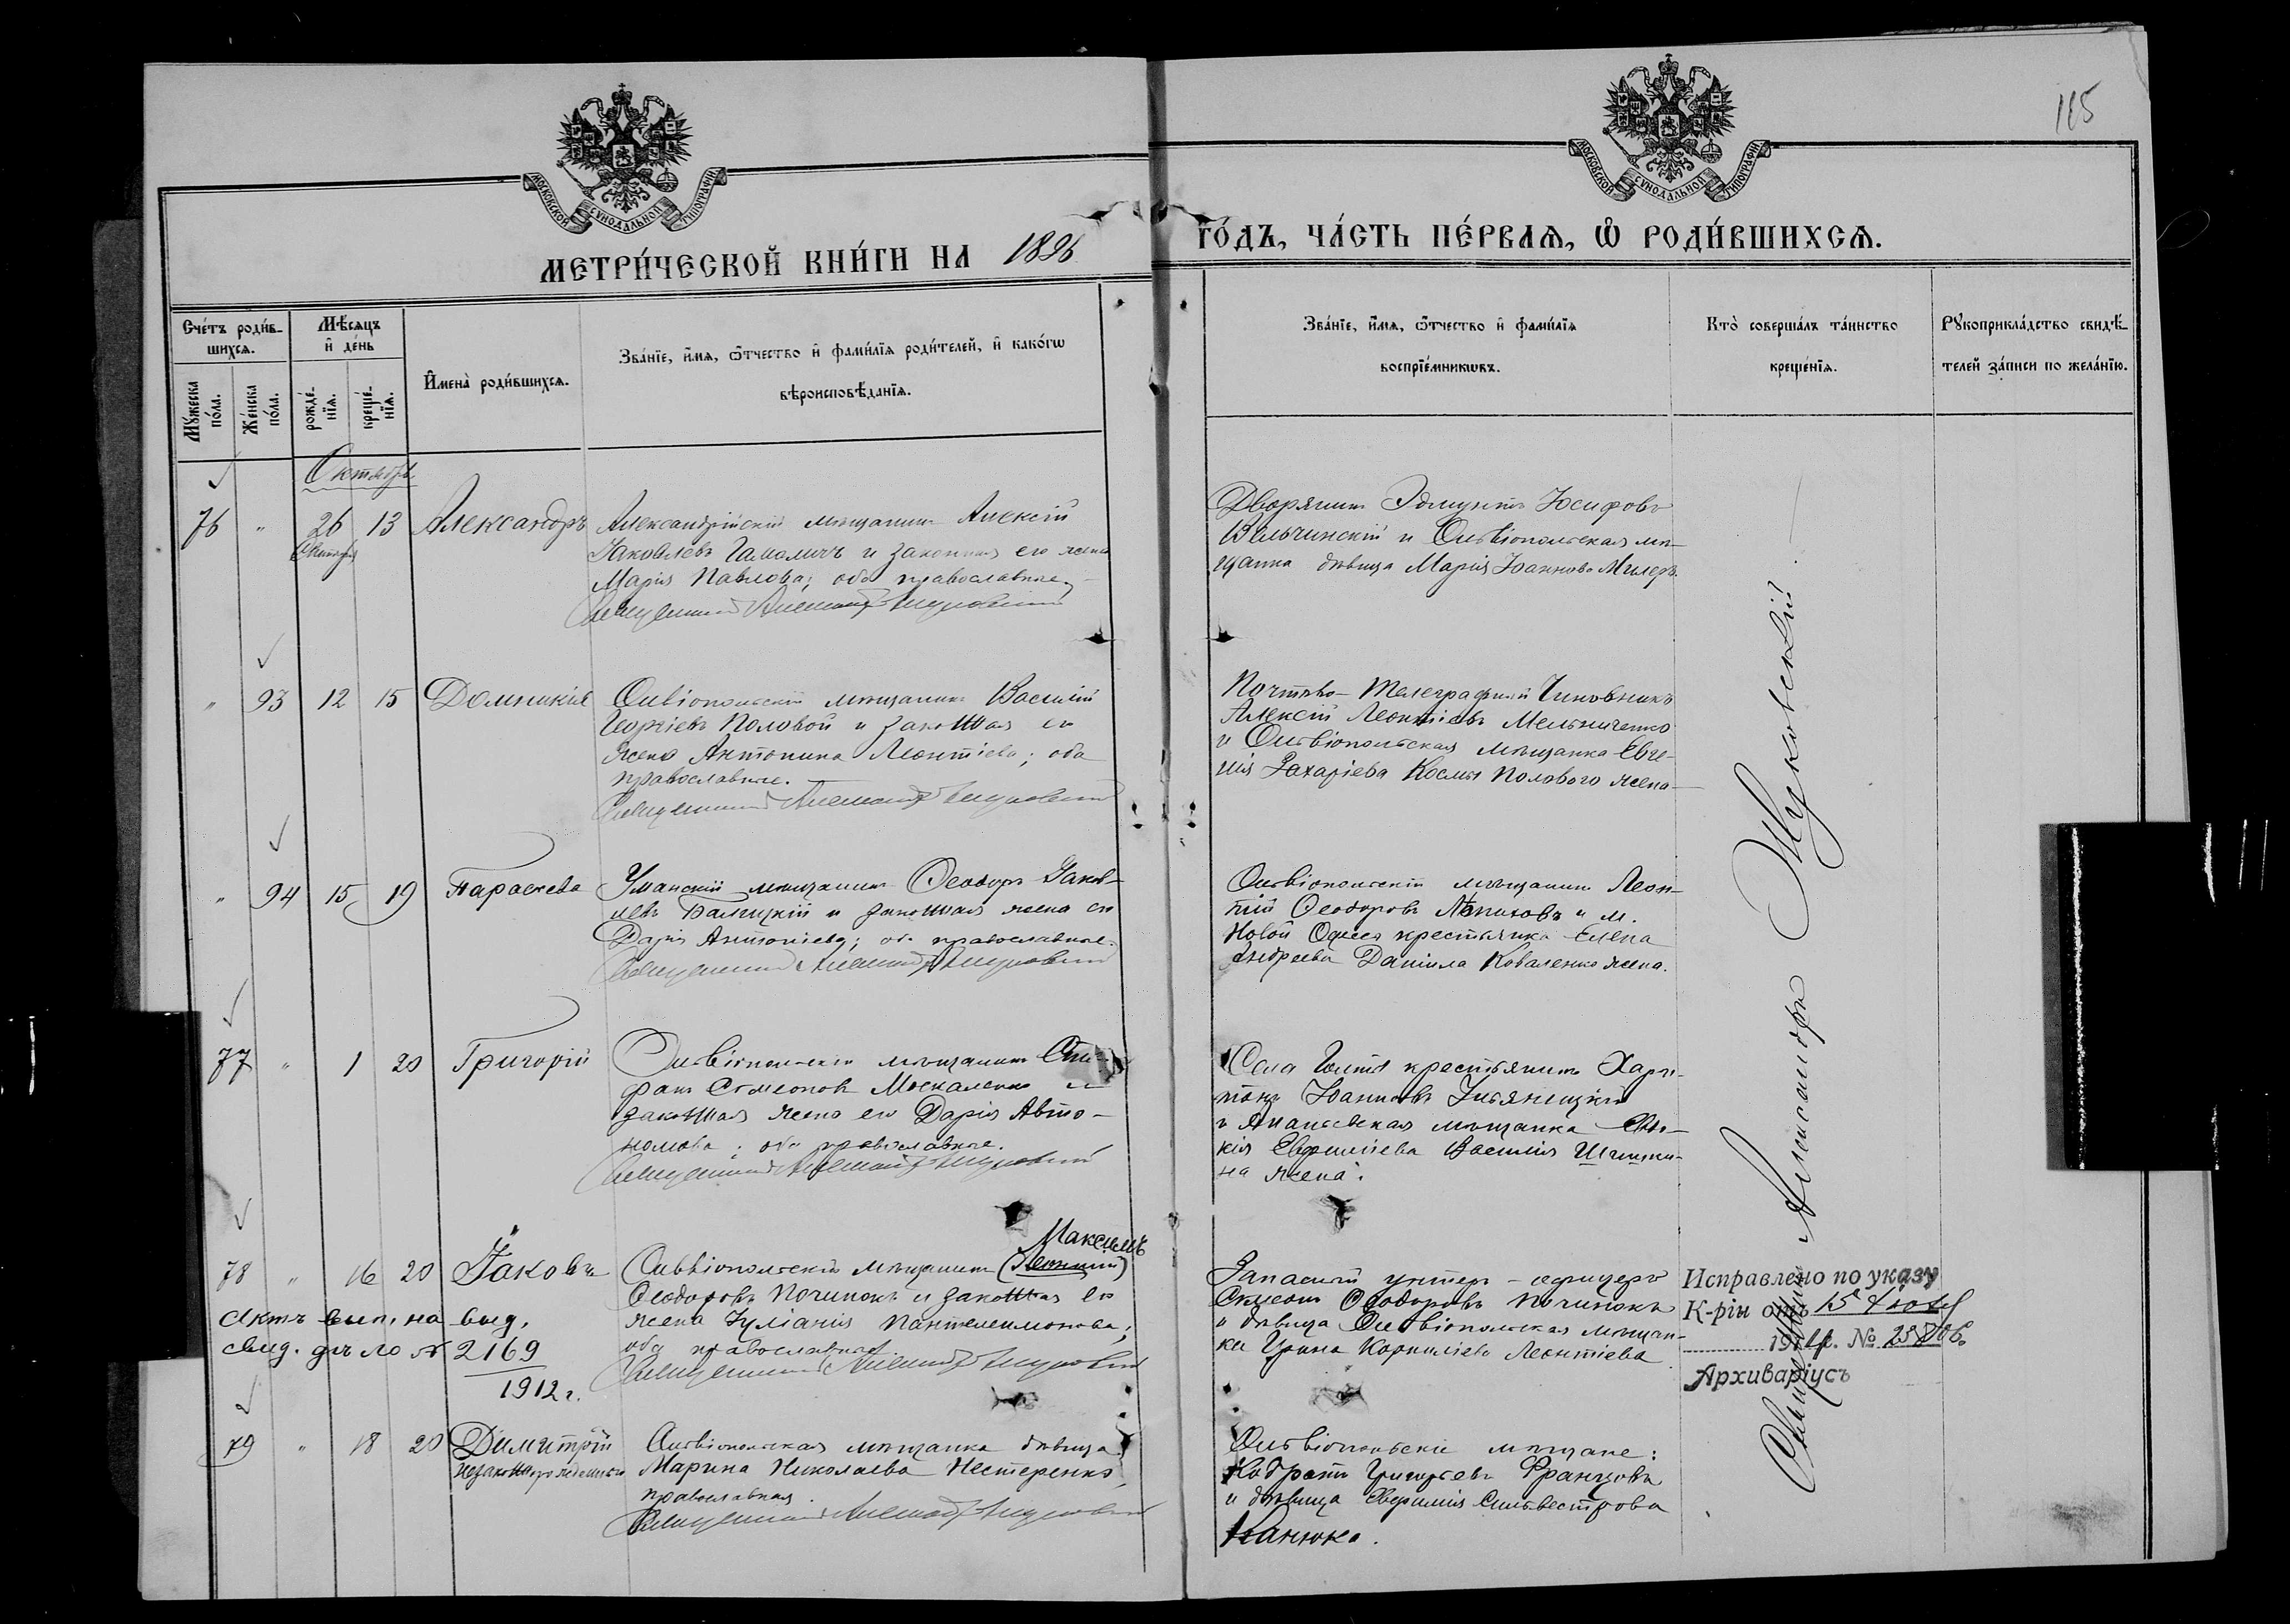 115
МОСКОВСКОЙ СУНОДАЛЬНОЙ ТИПОГРАФІИ
МОСКОВСКОЙ СУНОДАЛЬНОЙ ТИПОГРАФІИ
МЕТРИ́ЧЕСКОЙ КНИ́ГИ НА 1896 ГО́ДЪ, ЧА́СТЬ ПЕ́РВАѦ, Ѡ РОДИ́ВШИХСѦ.
Сче́тъ роди́в-
шихсѧ.
Мꙋ́жеска по́ла.
Же́нска по́ла.
Мѣ́сѧцъ и҆ де́нь
рожде́-нїѧ.
креще́-нїѧ.
И҆мена̀ роди́вшихсѧ.
Зва́нїе, и҆́мѧ, ѻ҆́тчество и҆ фами́лїѧ роди́телей, и҆ како́гѡ
вѣроисповѣ́данїѧ.
Зва́нїе, и҆́мѧ, ѻ҆́тчество и҆ фами́лїѧ
воспрїе́мникѡвъ.
Кто̀ соверша́лъ та́инство
креще́нїѧ.
Рꙋкоприкла́дство свидѣ́-
телей за́писи по жела́нїю.
Октябрь
76 " 26 13 Александръ
Сентября
Александрійскій мѣщанинъ Алексій
Іаковлевъ Гамаличъ и законная его жена
Марія Павлова; оба православные
Священникъ Александръ Жуковскій
Дворянинъ Эдмундъ Іосифовъ
Вальчинскій и Ольвіопольская мѣ-
щанка дѣвица Марія Іоаннова Миллеръ.
" 93 12 15 Домникія
Ольвіопольскій мѣщанинъ Василій
Георгіевъ Половой и законная его
жена Антонина Леонтіева; оба
православные.
Священникъ Александръ Жуковскій
Почтово-Телеграфный Чиновникъ
Алексій Леонтіевъ Мельниченко
и Ольвіопольская мѣщанка Евге-
нія Захаріева Космы Полового жена
" 94 15 19 Параскева
Уманскій мѣщанинъ Ѳеодоръ Іаков-
левъ Балицкій и законная жена его
Дарія Антоніева; оба православные.
Священникъ Александръ Жуковскій
Ольвіопольскій мѣщанинъ Леон-
тій Ѳеодоровъ и м.
Новой Одессы крестьянка Елена
Андреева Даніила Коваленко жена.
77 " 1 20 Григорій
Ольвіопольскій мѣщанинъ Сте-
фанъ Симеоновъ Москаленко и
законная жена его Дарія Авто-
номова; оба православные.
Священникъ Александръ Жуковскій
Села Голты крестьянинъ Хари-
тонъ Іоанновъ
и Ананьевская мѣщанка Евдо-
кія Евфиміева Василія Шишки-
на жена.
78 " 16 20 Іаковъ
Максимъ
Ольвіопольскій мѣщанинъ (Леонтій)
Ѳеодоровъ Починокъ и законная его
жена Іуліанія Пантелеимонова;
оба православные
Священникъ Александръ Жуковскій
Актъ вып. на выд.
свид. дѣло № 2169
1912 г.
Запасный унтеръ-офицеръ
Ѳеодоровъ Починокъ
и дѣвица Ольвіопольская мѣщан-
ка Ирина Корниліева Леонтіева
Исправлено по указу
К-ріи отъ 15 Іюля
191 г. №
Архиваріусъ
79 " 18 20 Димитрій
незаконнорожденный
Ольвіопольская мѣщанка дѣвица
Марина Николаева Нестеренко,
православная.
Священникъ Александръ Жуковскій
Ольвіопольскіе мѣщане:
Кодратъ Григорьевъ Французъ
и дѣвица Евфимія Сильвестрова
Канюка.
Священникъ Александръ Жуковскій.